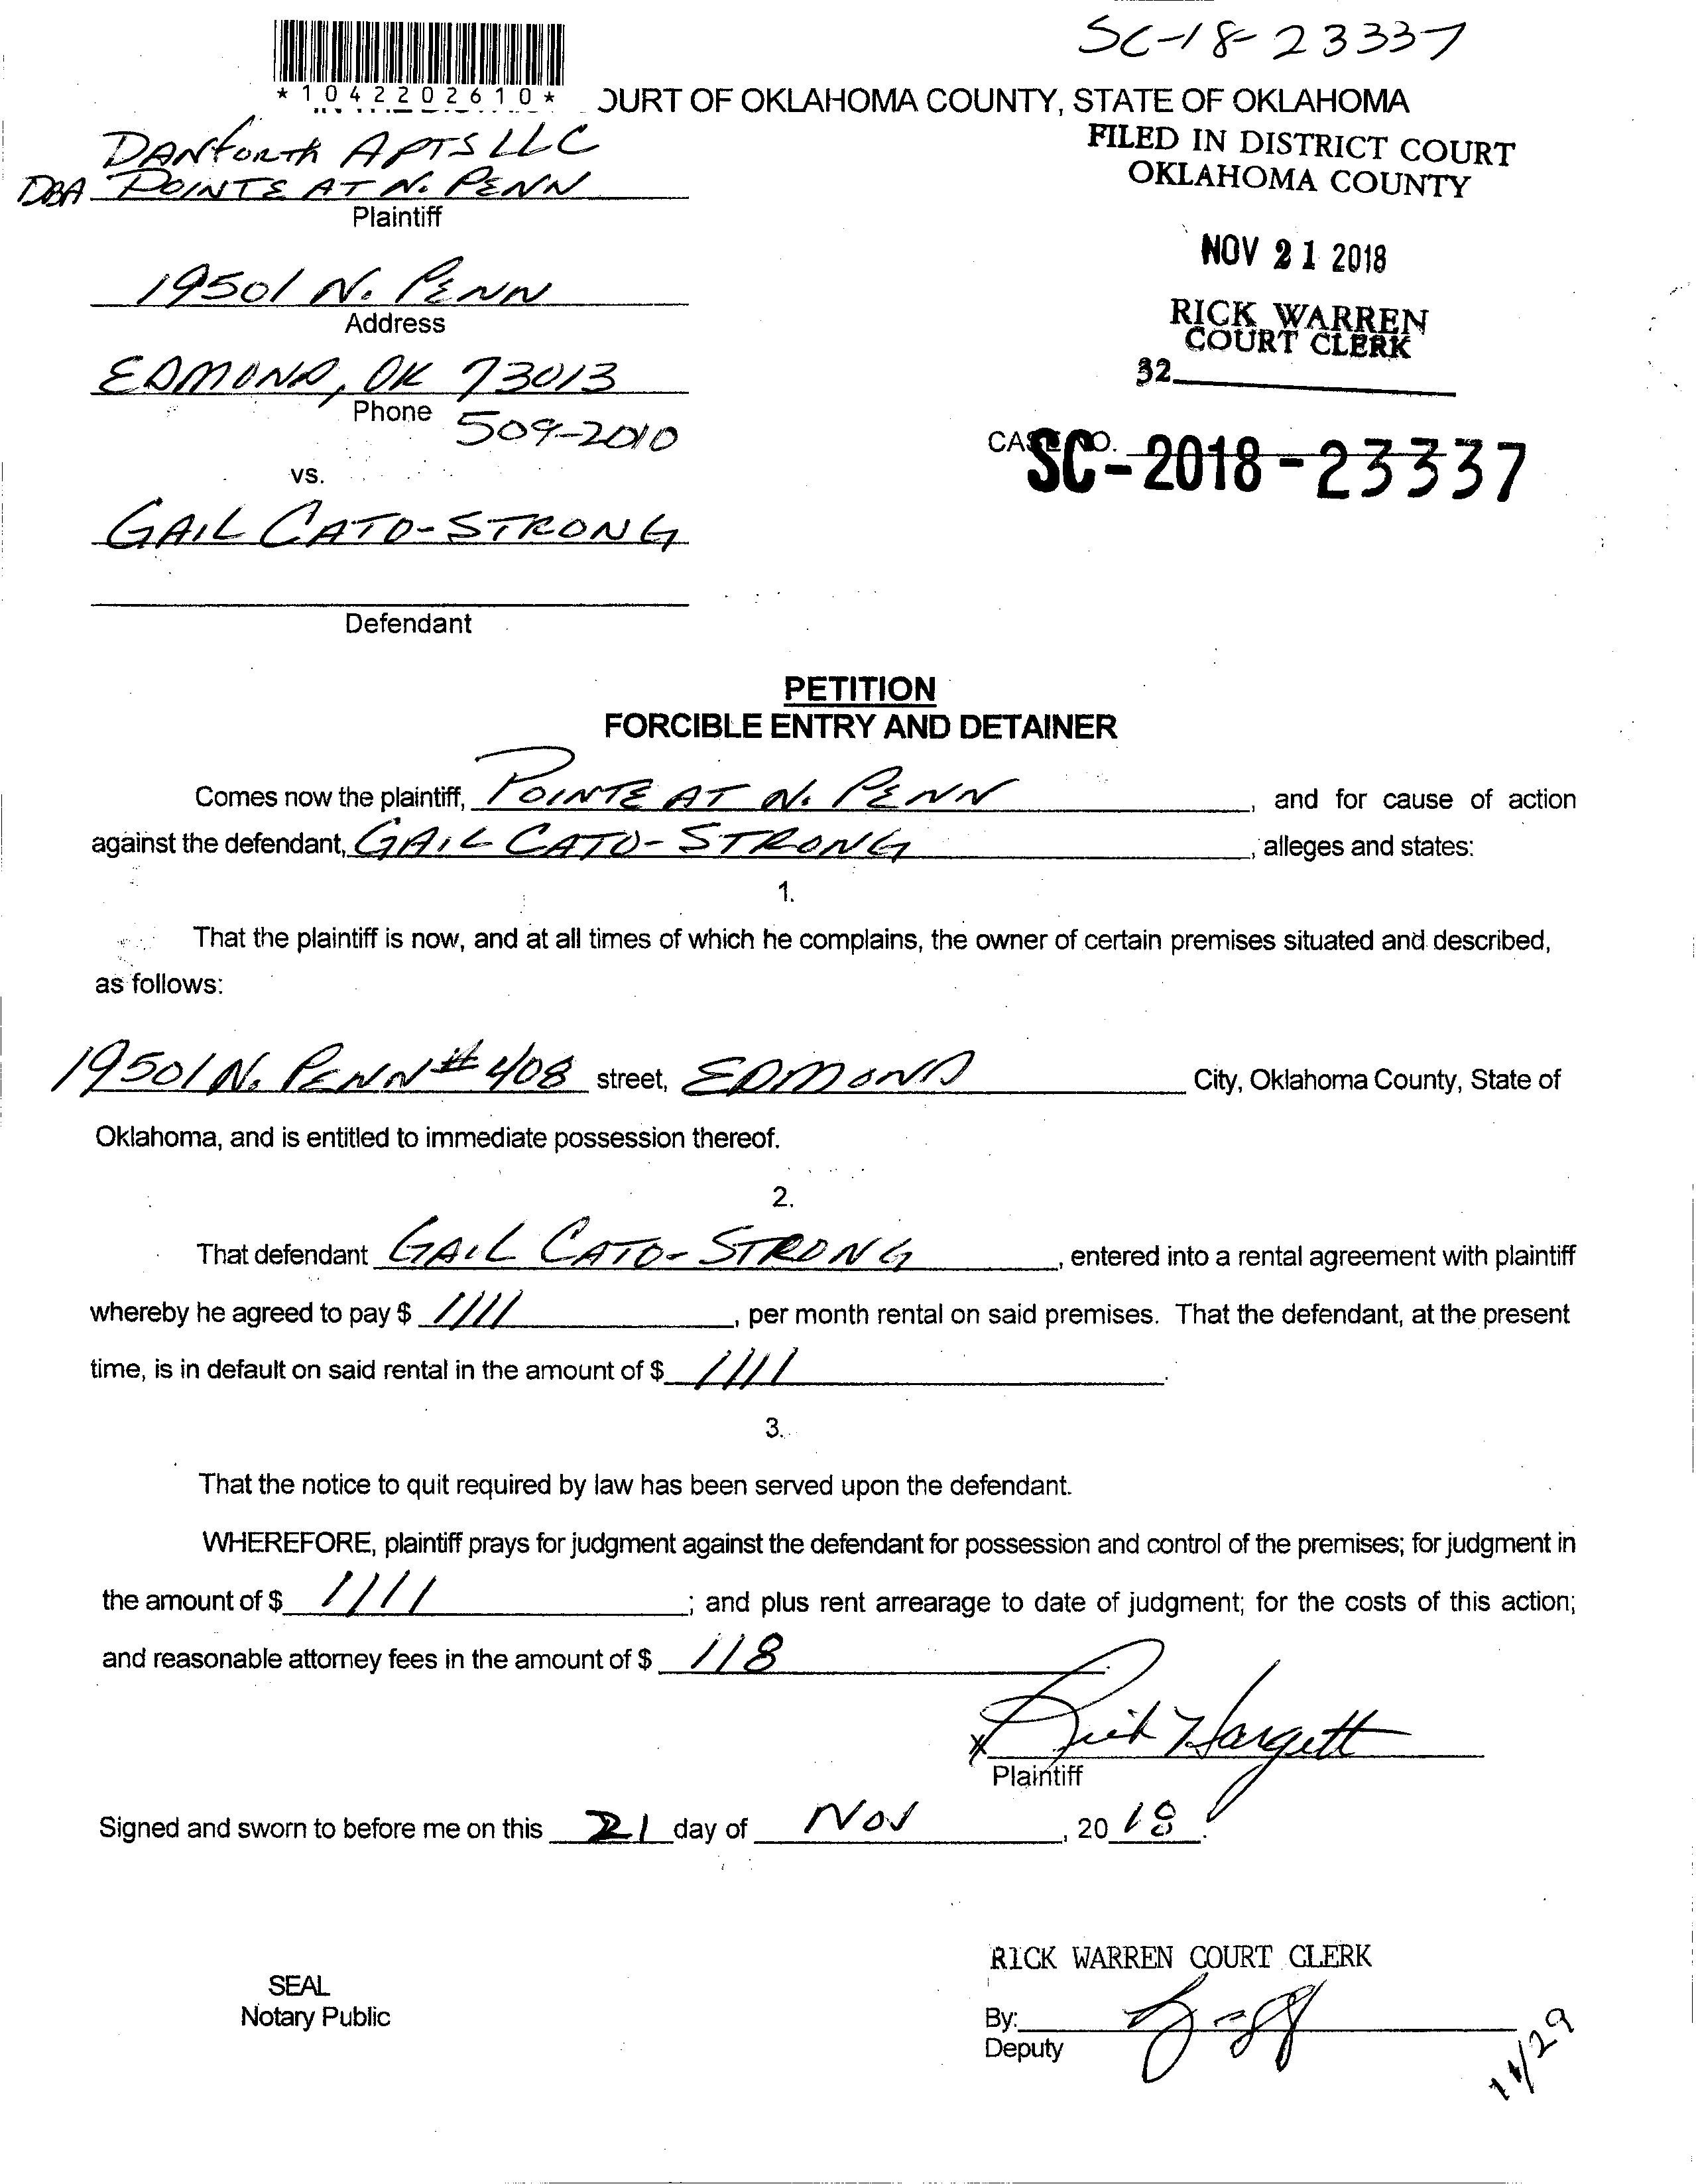 SC-18-23337
*1042202610*
OURT OF OKLAHOMA COUNTY, STATE OF OKLAHOMA
DANFORTH APTS LLC
DBA POINTE AT N. PENN
Plaintiff
FILED IN DISTRICT COURT
OKLAHOMA COUNTY
NOV 21 2018
RICK WARREN
COURT CLERK
32
19501 N. PENN
Address
EDMOND, OK 73013
Phone 509-2010
CASE NO. SC-2018-23337
vs.
GAIL CATO-STRONG
Defendant
PETITION
FORCIBLE ENTRY AND DETAINER
Comes now the plaintiff, POINTE AT N. PENN, and for cause of action
against the defendant, GAIL CATO-STRONG, alleges and states:
1.
That the plaintiff is now, and at all times of which he complains, the owner of certain premises situated and described,
as follows:
19501 N. PENN #408 street, EDMOND City, Oklahoma County, State of
Oklahoma, and is entitled to immediate possession thereof.
2.
That defendant GAIL CATO-STRONG, entered into a rental agreement with plaintiff
whereby he agreed to pay $ 1111, per month rental on said premises. That the defendant, at the present
time, is in default on said rental in the amount of $ 1111.
3.
That the notice to quit required by law has been served upon the defendant.
WHEREFORE, plaintiff prays for judgment against the defendant for possession and control of the premises; for judgment in
the amount of $ 1111; and plus rent arrearage to date of judgment; for the costs of this action;
and reasonable attorney fees in the amount of $ 118.
x Rick Hargett
Plaintiff
Signed and sworn to before me on this 21 day of NOV, 20 18.
RICK WARREN COURT CLERK
SEAL
Notary Public
By:
Deputy
11/29